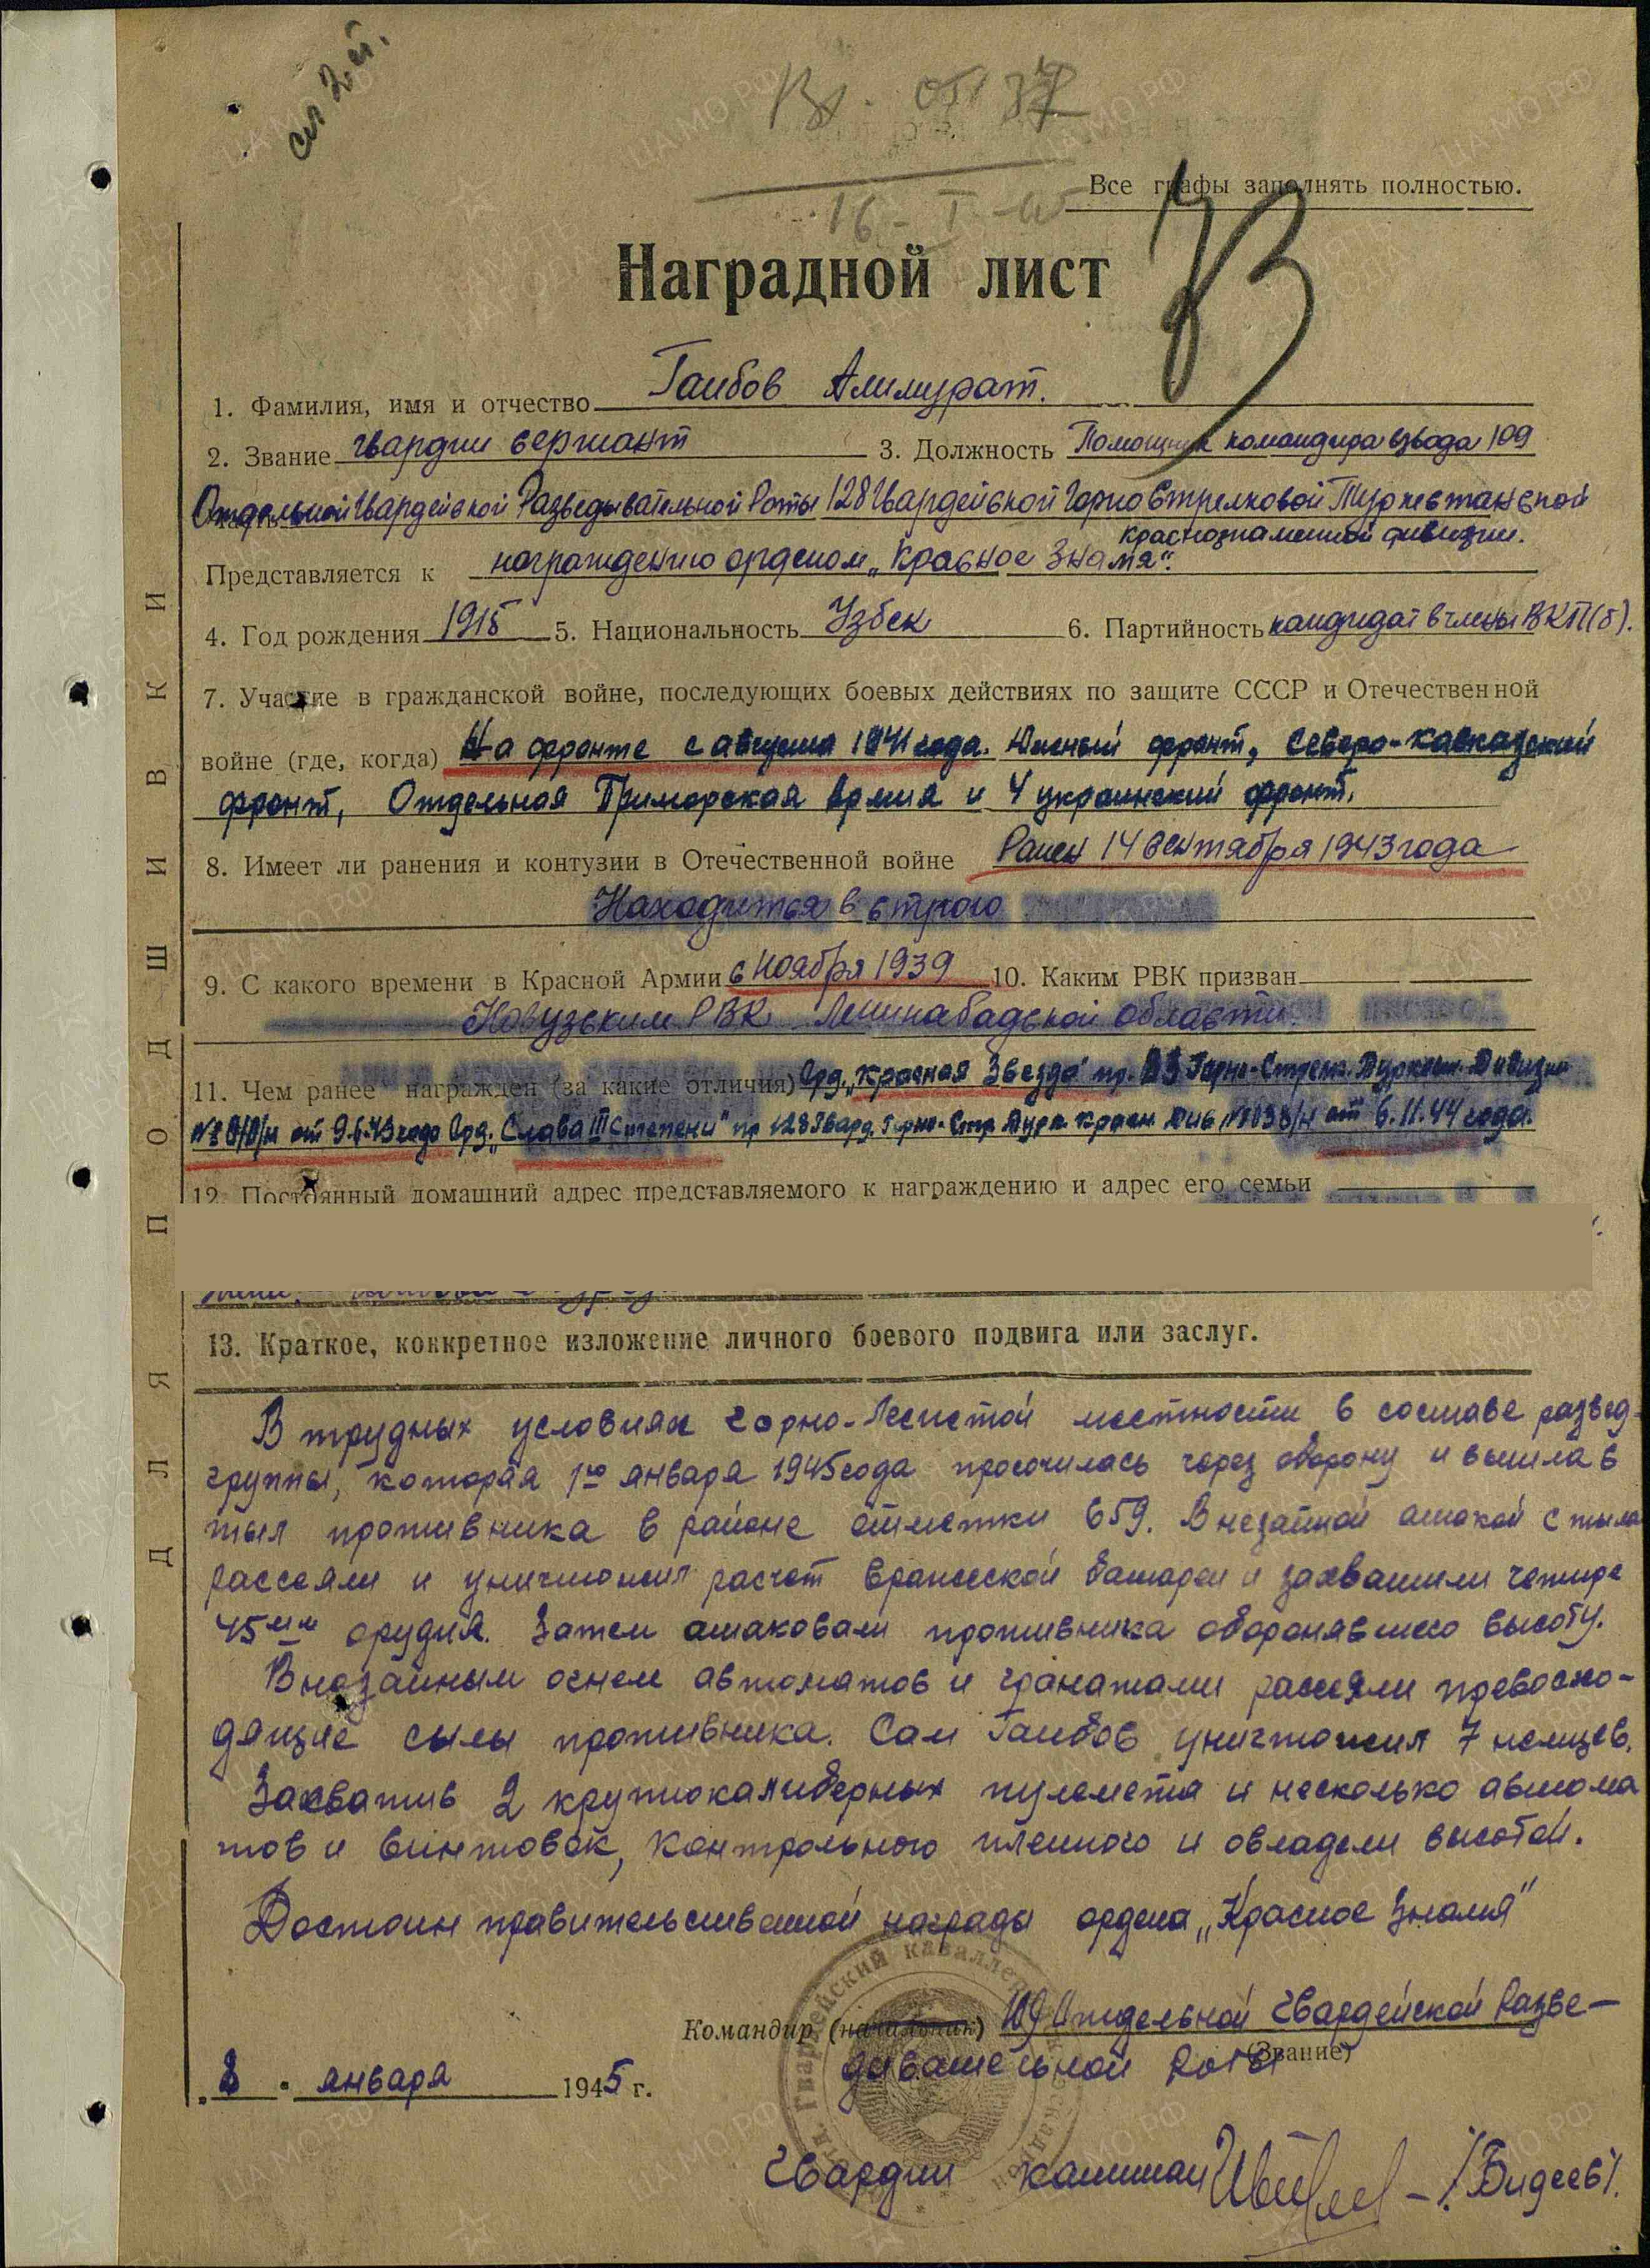 сл 2 й.
Все графы заполнять полностью.
16-I-45
КЗ
Наградной лист
1. Фамилия, имя и отчество Гаибов Алимурат.
2. Звание гвардии сержант 3. Должность Помощник командира взвода 109
Отдельной Гвардейской Разведывательной Роты 128 Гвардейской Горно Стрелковой Туркестанской
Краснознаменной дивизии.
Представляется к награждению орденом „Красное Знамя".
4. Год рождения 1915 5. Национальность Узбек 6. Партийность кандидат в члены ВКП(б).
7. Участие в гражданской войне, последующих боевых действиях по защите СССР и Отечественной
войне (где, когда) На фронте с августа 1941 года. Южный фронт, Северо-Кавказский
фронт, Отдельная Приморская Армия и 4 украинский фронт.
8. Имеет ли ранения и контузии в Отечественной войне Ранен 14 сентября 1943 года
Находиться в строю
9. С какого времени в Красной Армии 6 ноября 1939 10. Каким РВК призван
РВК Ленинабадской области.
11. Чем ранее награжден (за какие отличия) Орд. „Красная Звезда" пр. 83 Горно-Стрелк. Туркест. Дивизии
от 9.6.43 года Орд. „Слава III Степени" пр 128 Гвард. Горно-Стр. Турк. Красн. Див №038/н от 6.11.44 года.
12. Постоянный домашний адрес представляемого к награждению и адрес его семьи
13. Краткое, конкретное изложение личного боевого подвига или заслуг.
В трудных условиях горно-лесистой местности в составе развед-
группы, которая 1го января 1945 года просочилась через оборону и вышла в
тыл противника в районе отметки 659. Внезапной атакой с тыла
рассеяли и уничтожил расчет вражеской батареи и захватили четыре
45 мм орудия. Затем атаковали противника оборонявшего высоту.
Внезапным огнем автоматов и гранатами рассеяли превосхо-
дящие силы противника. Сам Гаибов уничтожил 7 немцев.
Захватив 2 крупнокалиберных пулемета и несколько автома
тов и винтовок, контрольного пленного и овладели высотой.
Достоин правительственной награды ордена „Красное Знамя"
Командир (начальник) 109 Отдельной Гвардейской Разве-
дывательной Роты
(Звание)
„8" января 1945 г.
Гвардии капитан /Бидеев/.
ДЛЯ ПОДШИВКИ